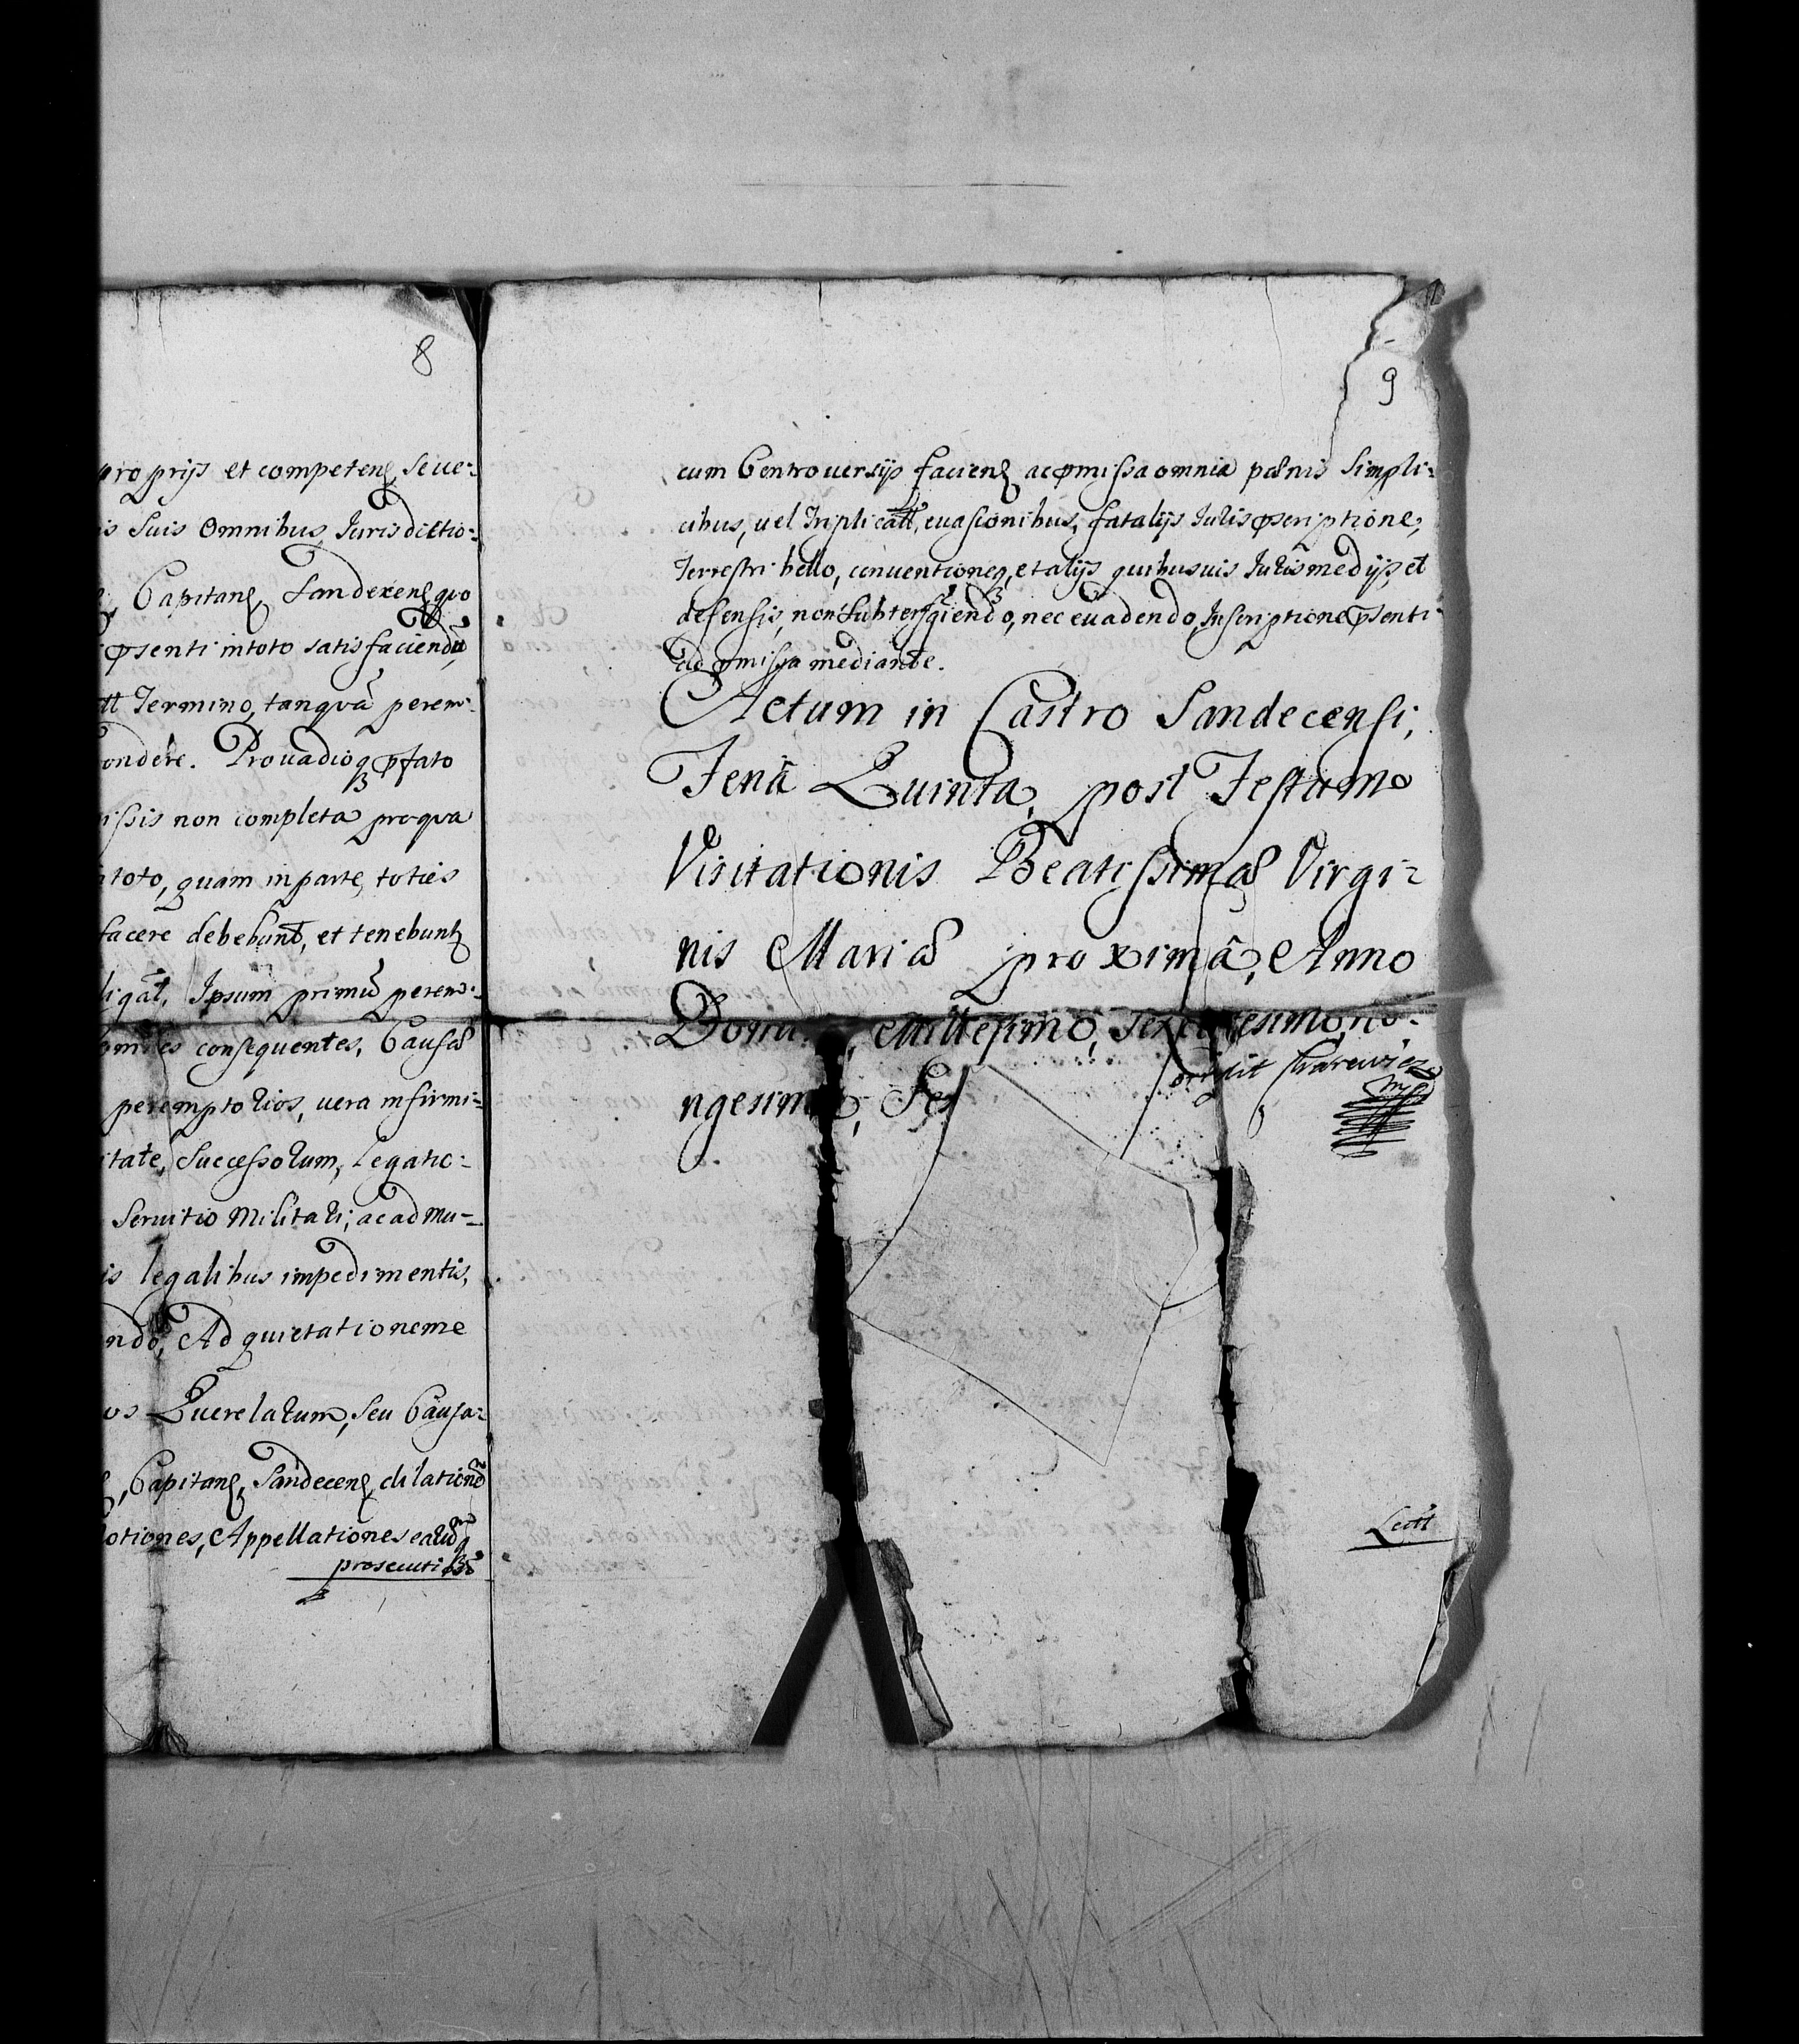 8
proprijs et competen Seve-
is Suis Omnibus, Jurisdictio-
Capitan Sandecen quo
psenti in toto satisfaciendũ
Termino, tanquã perem-
ondere. Provadioq pfato
issis non completa pro qua
toto, quam in parte, toties
facere debebunt, et tenebunt
ligat, Ipsum primũ perem-
omnes consequentes, Causas
peremptorios, vera infirmi-
tate, Successorum, legatio-
Servitio Militari; ac ad mu-
is legalibus impedimentis,
ndo, Ad quietationem
os Querelarum, seu Causa-
Capitan, Sandecen, dilatione
otiones, Appellationes earũ
prosecuti
9
cum Controversijs facien ac pmissa omnia pœnis Simpli-
cibus, vel Triplicatt, evasionibus, fatalijs Juris pscriptione,
Terrestri bello, conventioneq, et alijs quibusvis Juris medijs, et
defensis, non Subterfgiendo, nec evadendo, Inscriptione psenti
ad pmissa mediante.
Actum in Castro Sandecensi,
Feria Quinta, post Festum
Visitationis Beatissimæ Virgi-
nis Mariæ proximâ, Anno
Domi Millesimo, Sex tesimo, no-
ngesimo, Sex
Lectt